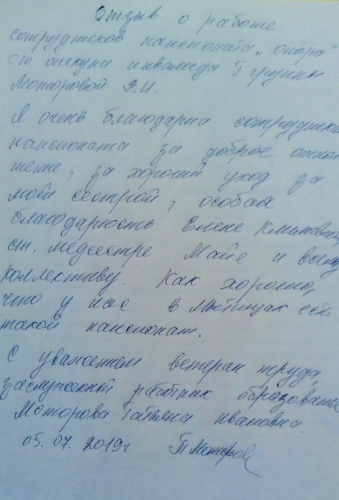 Отзыв о работе
сотрудников пансионата „опора"
от опекуна инвалида I группы
Моторовой В.И.
Я очень благодарна сотрудникам
пансионата за доброе отно
шение, за хороший уход за
моей сестрой, особая
благодарность Елене Климовне,
ст. медсестре Майе и всему
коллективу. Как хорошо,
что у нас в Мытищах есть
такой пансионат.
С уважением ветеран труда,
заслуженный работник образования
Моторова Татьяна Ивановна
05.07.2019г